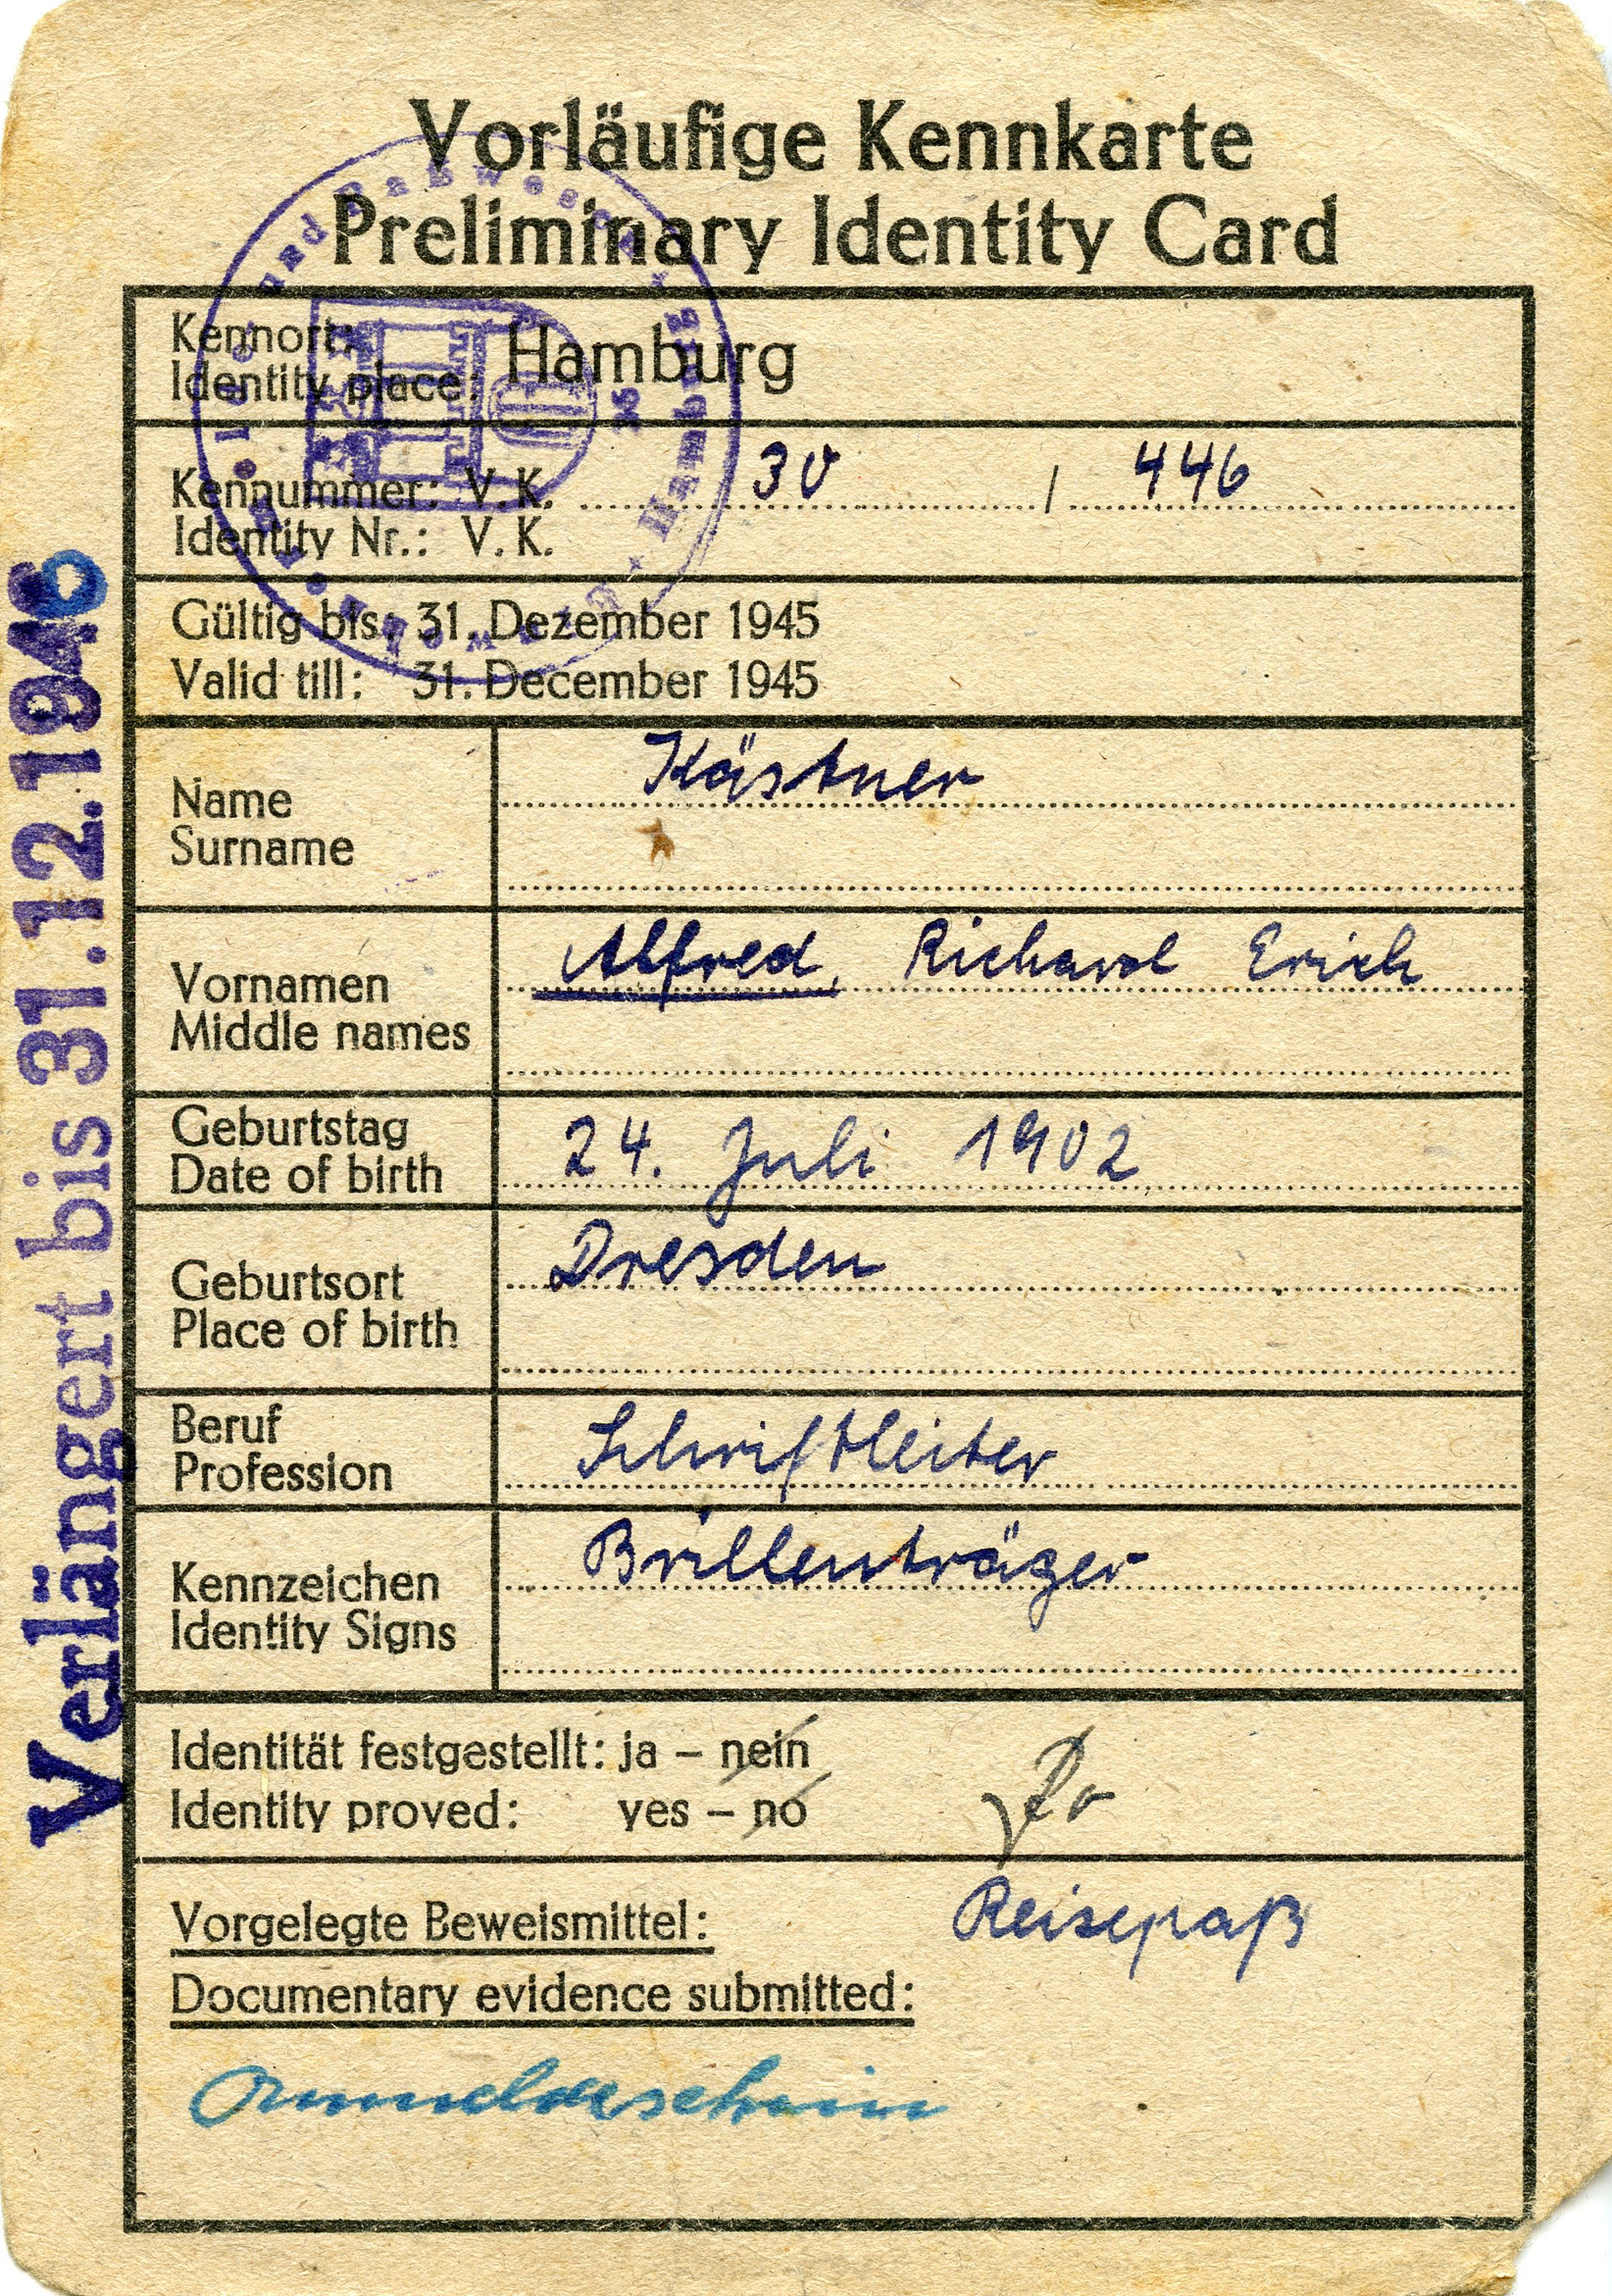 Vorläufige Kennkarte
Preliminary Identity Card
Kennort: Hamburg
Identity place:
Kennummer: V. K. 30 / 446
Identity Nr.: V. K.
Gültig bis: 31. Dezember 1945
Valid till: 31. December 1945
Name Kästner
Surname
Vornamen Alfred, Richard Erich
Middle names
Geburtstag 24. Juli 1902
Date of birth
Geburtsort Dresden
Place of birth
Beruf Schriftleiter
Profession
Kennzeichen Brillenträger
Identity Signs
Identität festgestellt: ja – nein
Identity proved: yes – no
Vorgelegte Beweismittel: Reisepaß
Documentary evidence submitted:
Anmeldeschein
Verlängert bis 31.12.1946